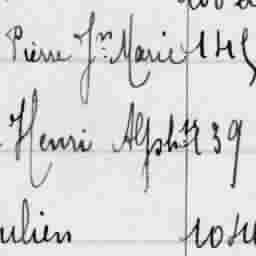 Pierre Jn Marie 145
Henri Alph. 139
ulien 104